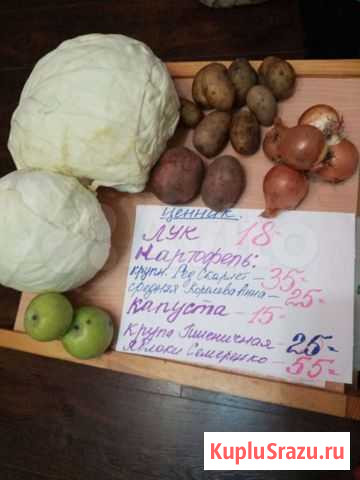 Ценник.
Лук 18-
Картофель:
крупн. Ред Скарлет - 35=
средняя Королева Анна - 25-
капуста - 15-
Крупа Пшеничная - 25-
Яблоки Семеренко - 55=
KupluSrazu.ru
www.kuplusrazu.ru